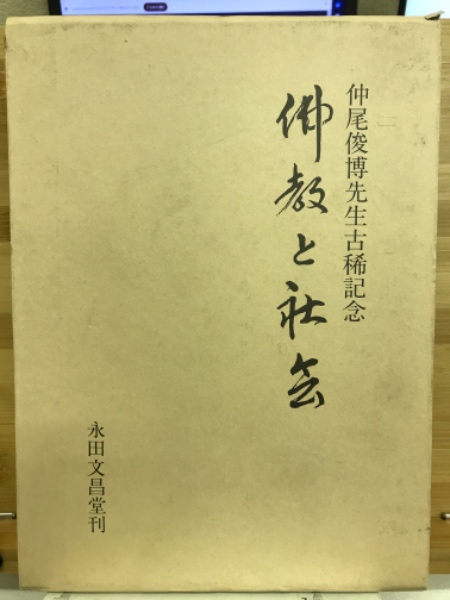 仲尾俊博先生古稀記念
佛教と社会
永田文昌堂刊